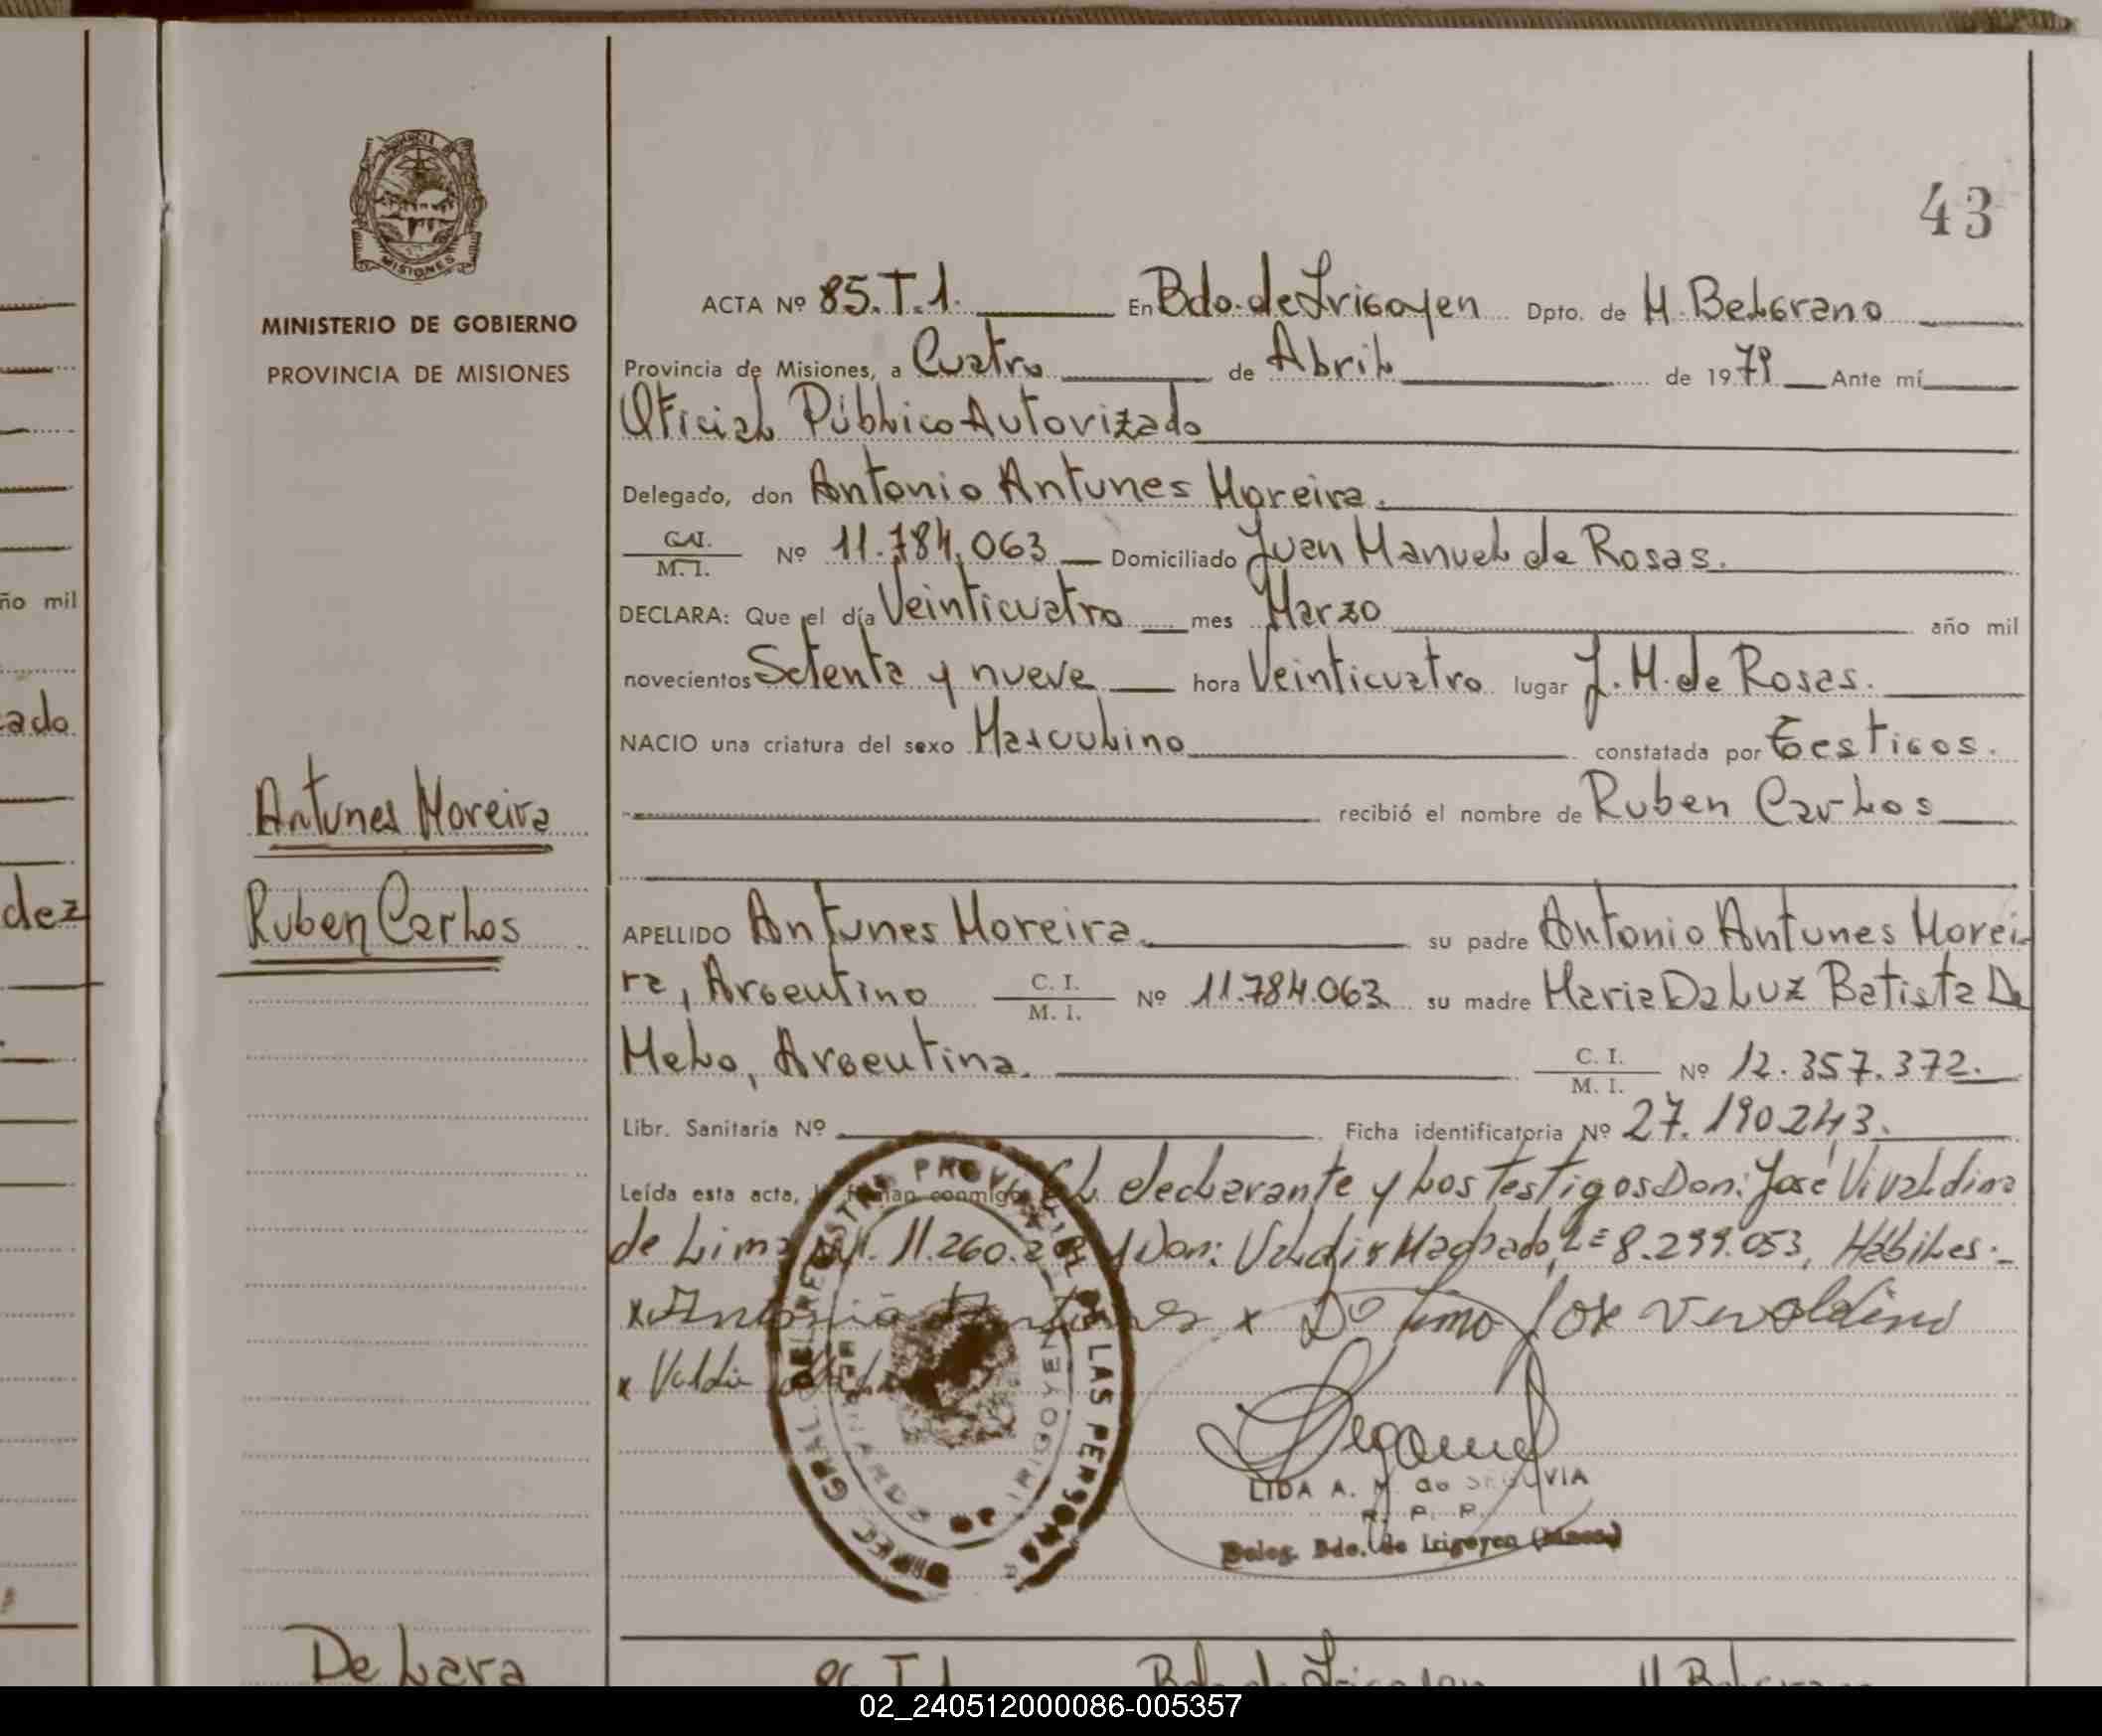 43
MISIONES
MINISTERIO DE GOBIERNO
PROVINCIA DE MISIONES
ACTA Nº 85.T.1. En Bdo. de Irigoyen Dpto. de M. Belgrano
Provincia de Misiones, a Cuatro de Abril de 1979 Ante mí
Oficial Público Autorizado
Delegado, don Antonio Antunes Moreira.
M. I. Nº 11.784.063 Domiciliado Juan Manuel de Rosas.
DECLARA: Que el día Veinticuatro mes Marzo año mil
novecientos Setenta y nueve hora Veinticuatro lugar J. M. de Rosas.
NACIO una criatura del sexo Masculino constatada por Testigos.
recibió el nombre de Ruben Carlos
Antunes Moreira
Ruben Carlos
APELLIDO Antunes Moreira. su padre Antonio Antunes Morei
ra, Argentino C. I. M. I. Nº 11.784.063. su madre Maria Da Luz Batista De
Melo, Argentina. C. I. M. I. Nº 12.357.372.
Libr. Sanitaria Nº Ficha identificatoria Nº 27.190.243.
Leída esta acta, la firman conmigo El declarante y los Testigos Don: José Vivaldino
de Lima M.I. 11.260. y Don: Valdir Machado, LE 8.299.053, Hábiles:
x Antonio Antunes x De Lima Jose Vivaldino
x Valdir
DIREC. GRAL. DEL REGISTRO PROVINCIAL DE LAS PERSONAS
BERNARDO DE IRIGOYEN
LIDA A. M. de SEGOVIA
R. P. P.
Deleg. Bdo. de Irigoyen (Mnes.)
De Lara
86.T.1 Bdo. de Irigoyen M. Belgrano
ño mil
zado
dez
02_240512000086-005357